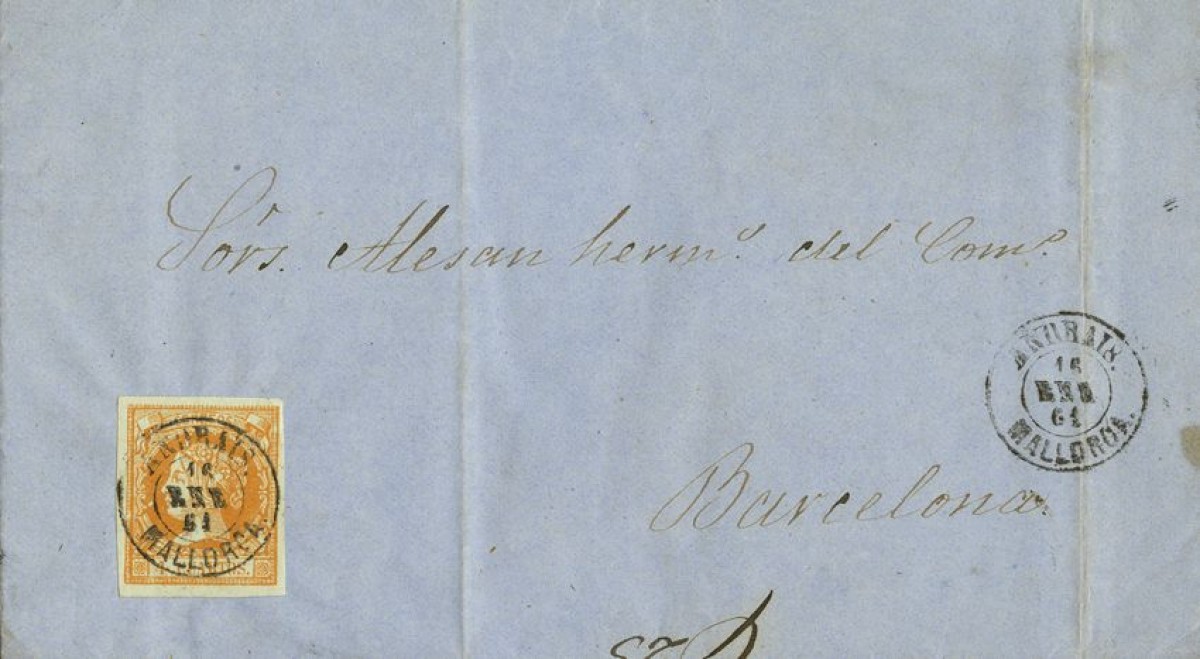 Sörs. Alesan hermº. del Comº.
ANDRAIX.
16
ENE
61
MALLORCA.
ANDRAIX.
16
ENE
61
MALLORCA.
Barcelona.